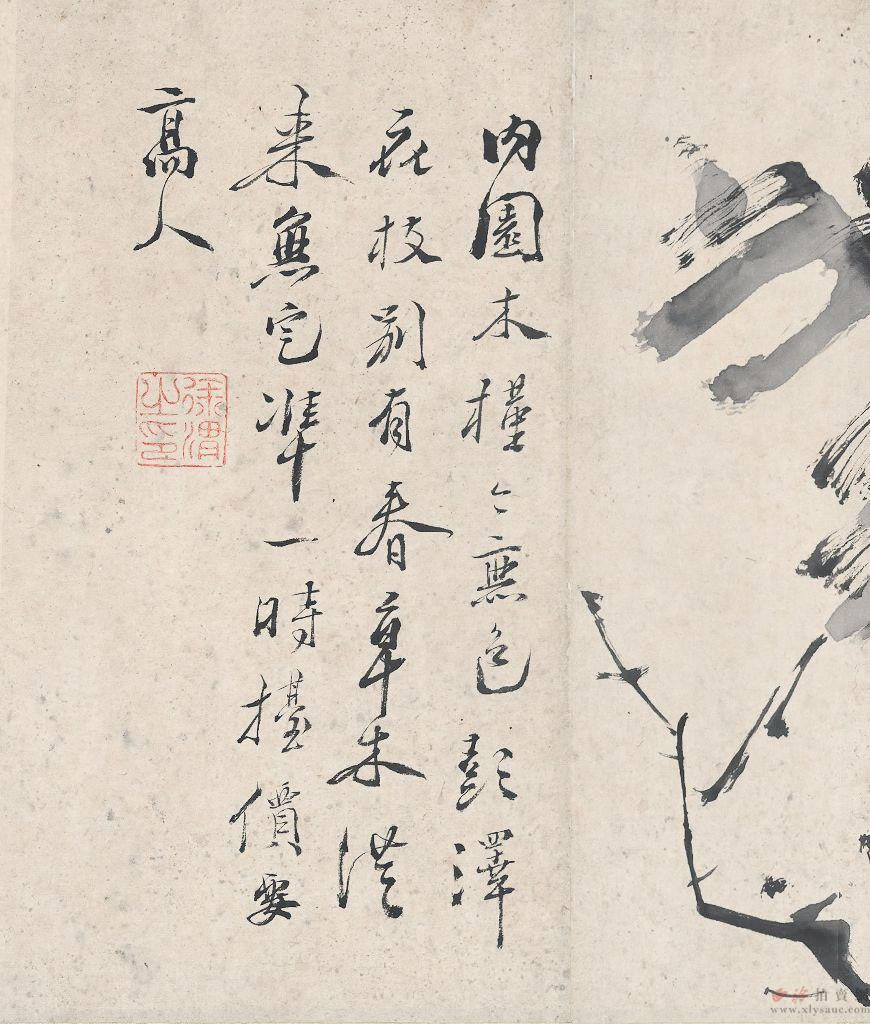 内園木槿々無色彭澤
花枝別有春草木從
来無定準一時擡價要
高人
徐渭之印
西泠拍賣
www.xlysauc.